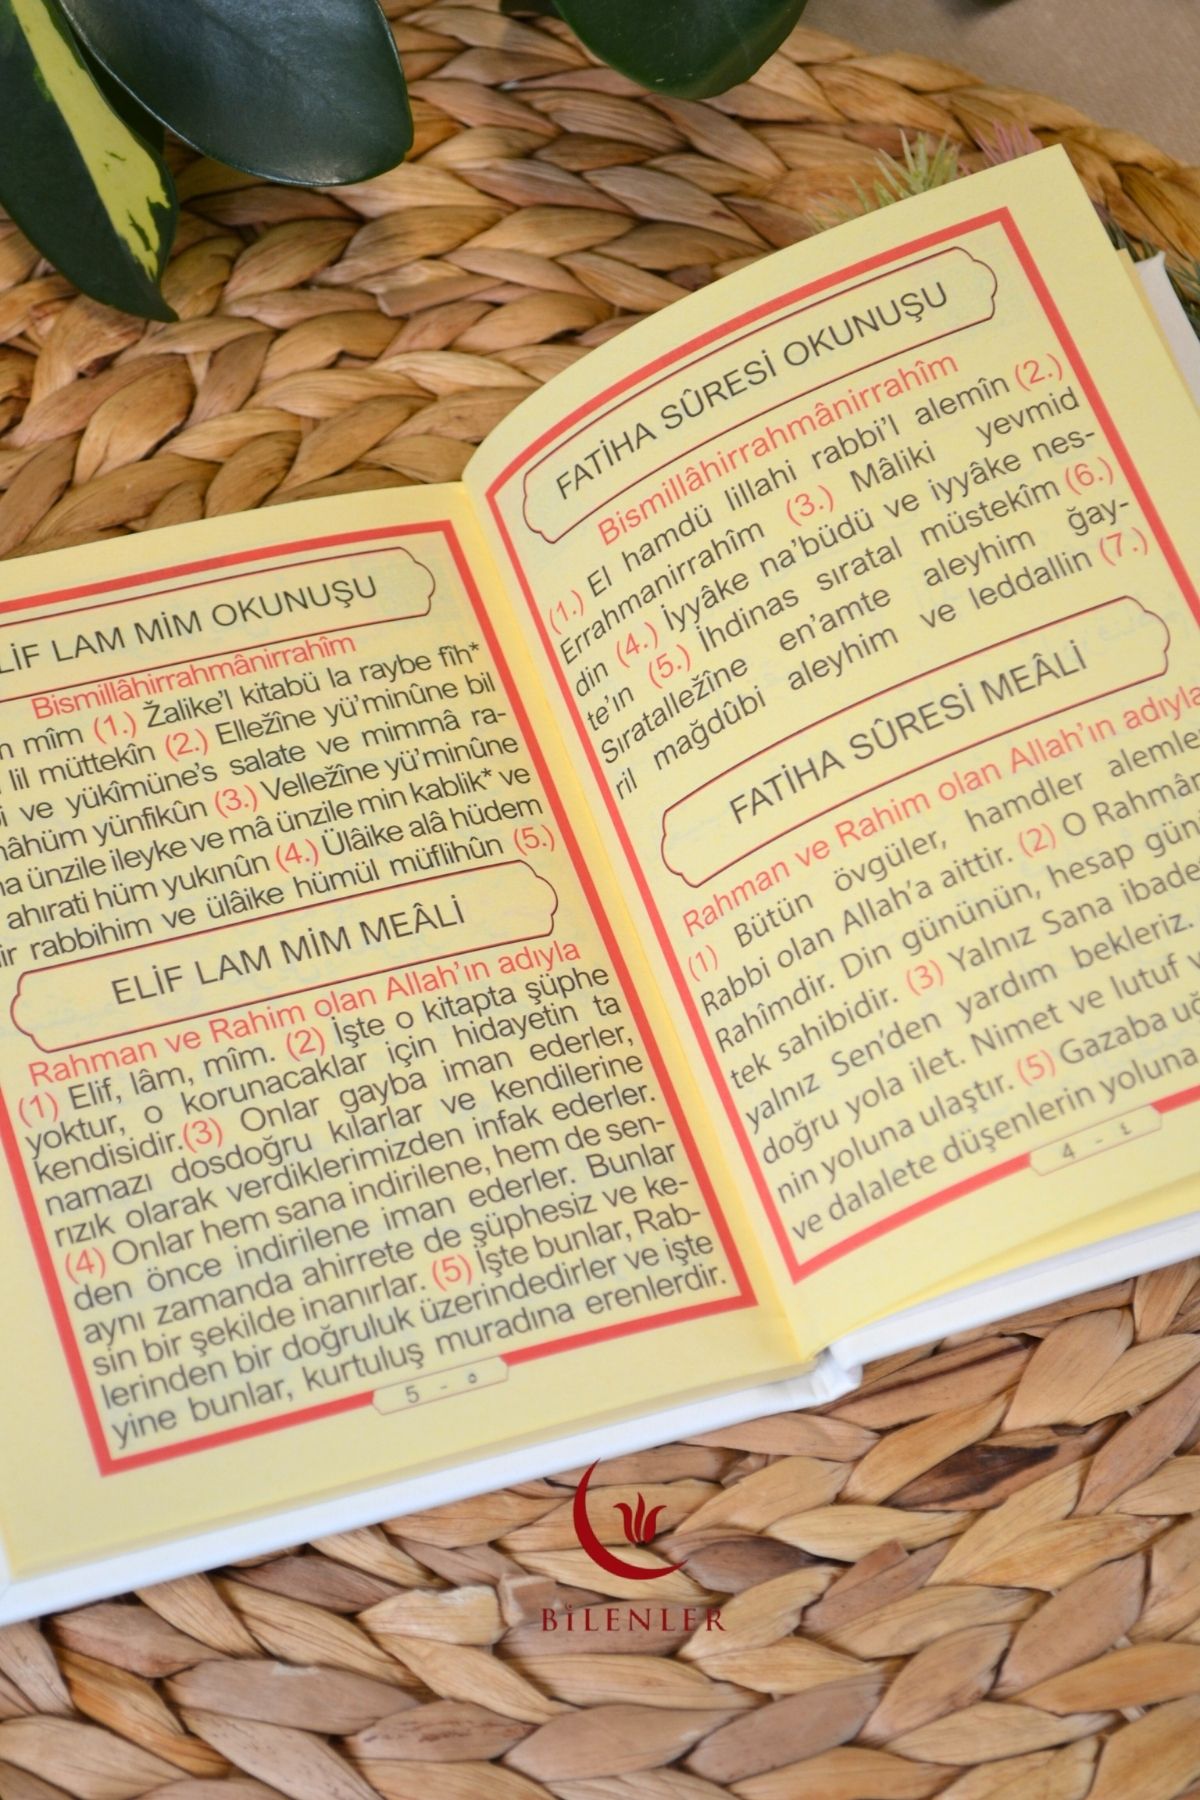 FATİHA SÛRESİ OKUNUŞU
Bismillâhirrahmânirrahîm
(1.) El hamdü lillahi rabbi'l alemîn (2.)
Errahmanirrahîm (3.) Mâliki yevmid
din (4.) İyyâke na'büdü ve iyyâke nes-
te'ın (5.) İhdinas sıratal müstekîm (6.)
Sıratalležîne en'amte aleyhim ğay-
ril mağdûbi aleyhim ve leddallin (7.)
FATİHA SÛRESİ MEÂLİ
Rahman ve Rahim olan Allah'ın adıyla
(1) Bütün övgüler, hamdler alemler
Rabbi olan Allah'a aittir. (2) O Rahmân
Rahîmdir. Din gününün, hesap gün
tek sahibidir. (3) Yalnız Sana ibade
yalnız Sen'den yardım bekleriz.
doğru yola ilet. Nimet ve lutuf
nin yoluna ulaştır. (5) Gazaba uğ
ve dalalete düşenlerin yoluna
4 - ٤
LİF LAM MİM OKUNUŞU
Bismillâhirrahmânirrahîm
mîm (1.) Žalike'l kitabü la raybe fîh*
lil müttekîn (2.) Elležîne yü'minûne bil
ve yükîmüne's salate ve mimmâ ra-
hüm yünfikûn (3.) Velležîne yü'minûne
ünzile ileyke ve mâ ünzile min kablik* ve
ahırati hüm yukınûn (4.) Ülâike alâ hüdem
rabbihim ve ülâike hümül müflihûn (5.)
ELİF LAM MİM MEÂLİ
Rahman ve Rahim olan Allah'ın adıyla
(1) Elif, lâm, mîm. (2) İşte o kitapta şüphe
yoktur, o korunacaklar için hidayetin ta
kendisidir.(3) Onlar gayba iman ederler,
namazı dosdoğru kılarlar ve kendilerine
rızık olarak verdiklerimizden infak ederler.
(4) Onlar hem sana indirilene, hem de sen-
den önce indirilene iman ederler. Bunlar
aynı zamanda ahirrete de şüphesiz ve ke-
sin bir şekilde inanırlar. (5) İşte bunlar, Rab-
lerinden bir doğruluk üzerindedirler ve işte
yine bunlar, kurtuluş muradına erenlerdir.
5 - ٥
BiLENLER